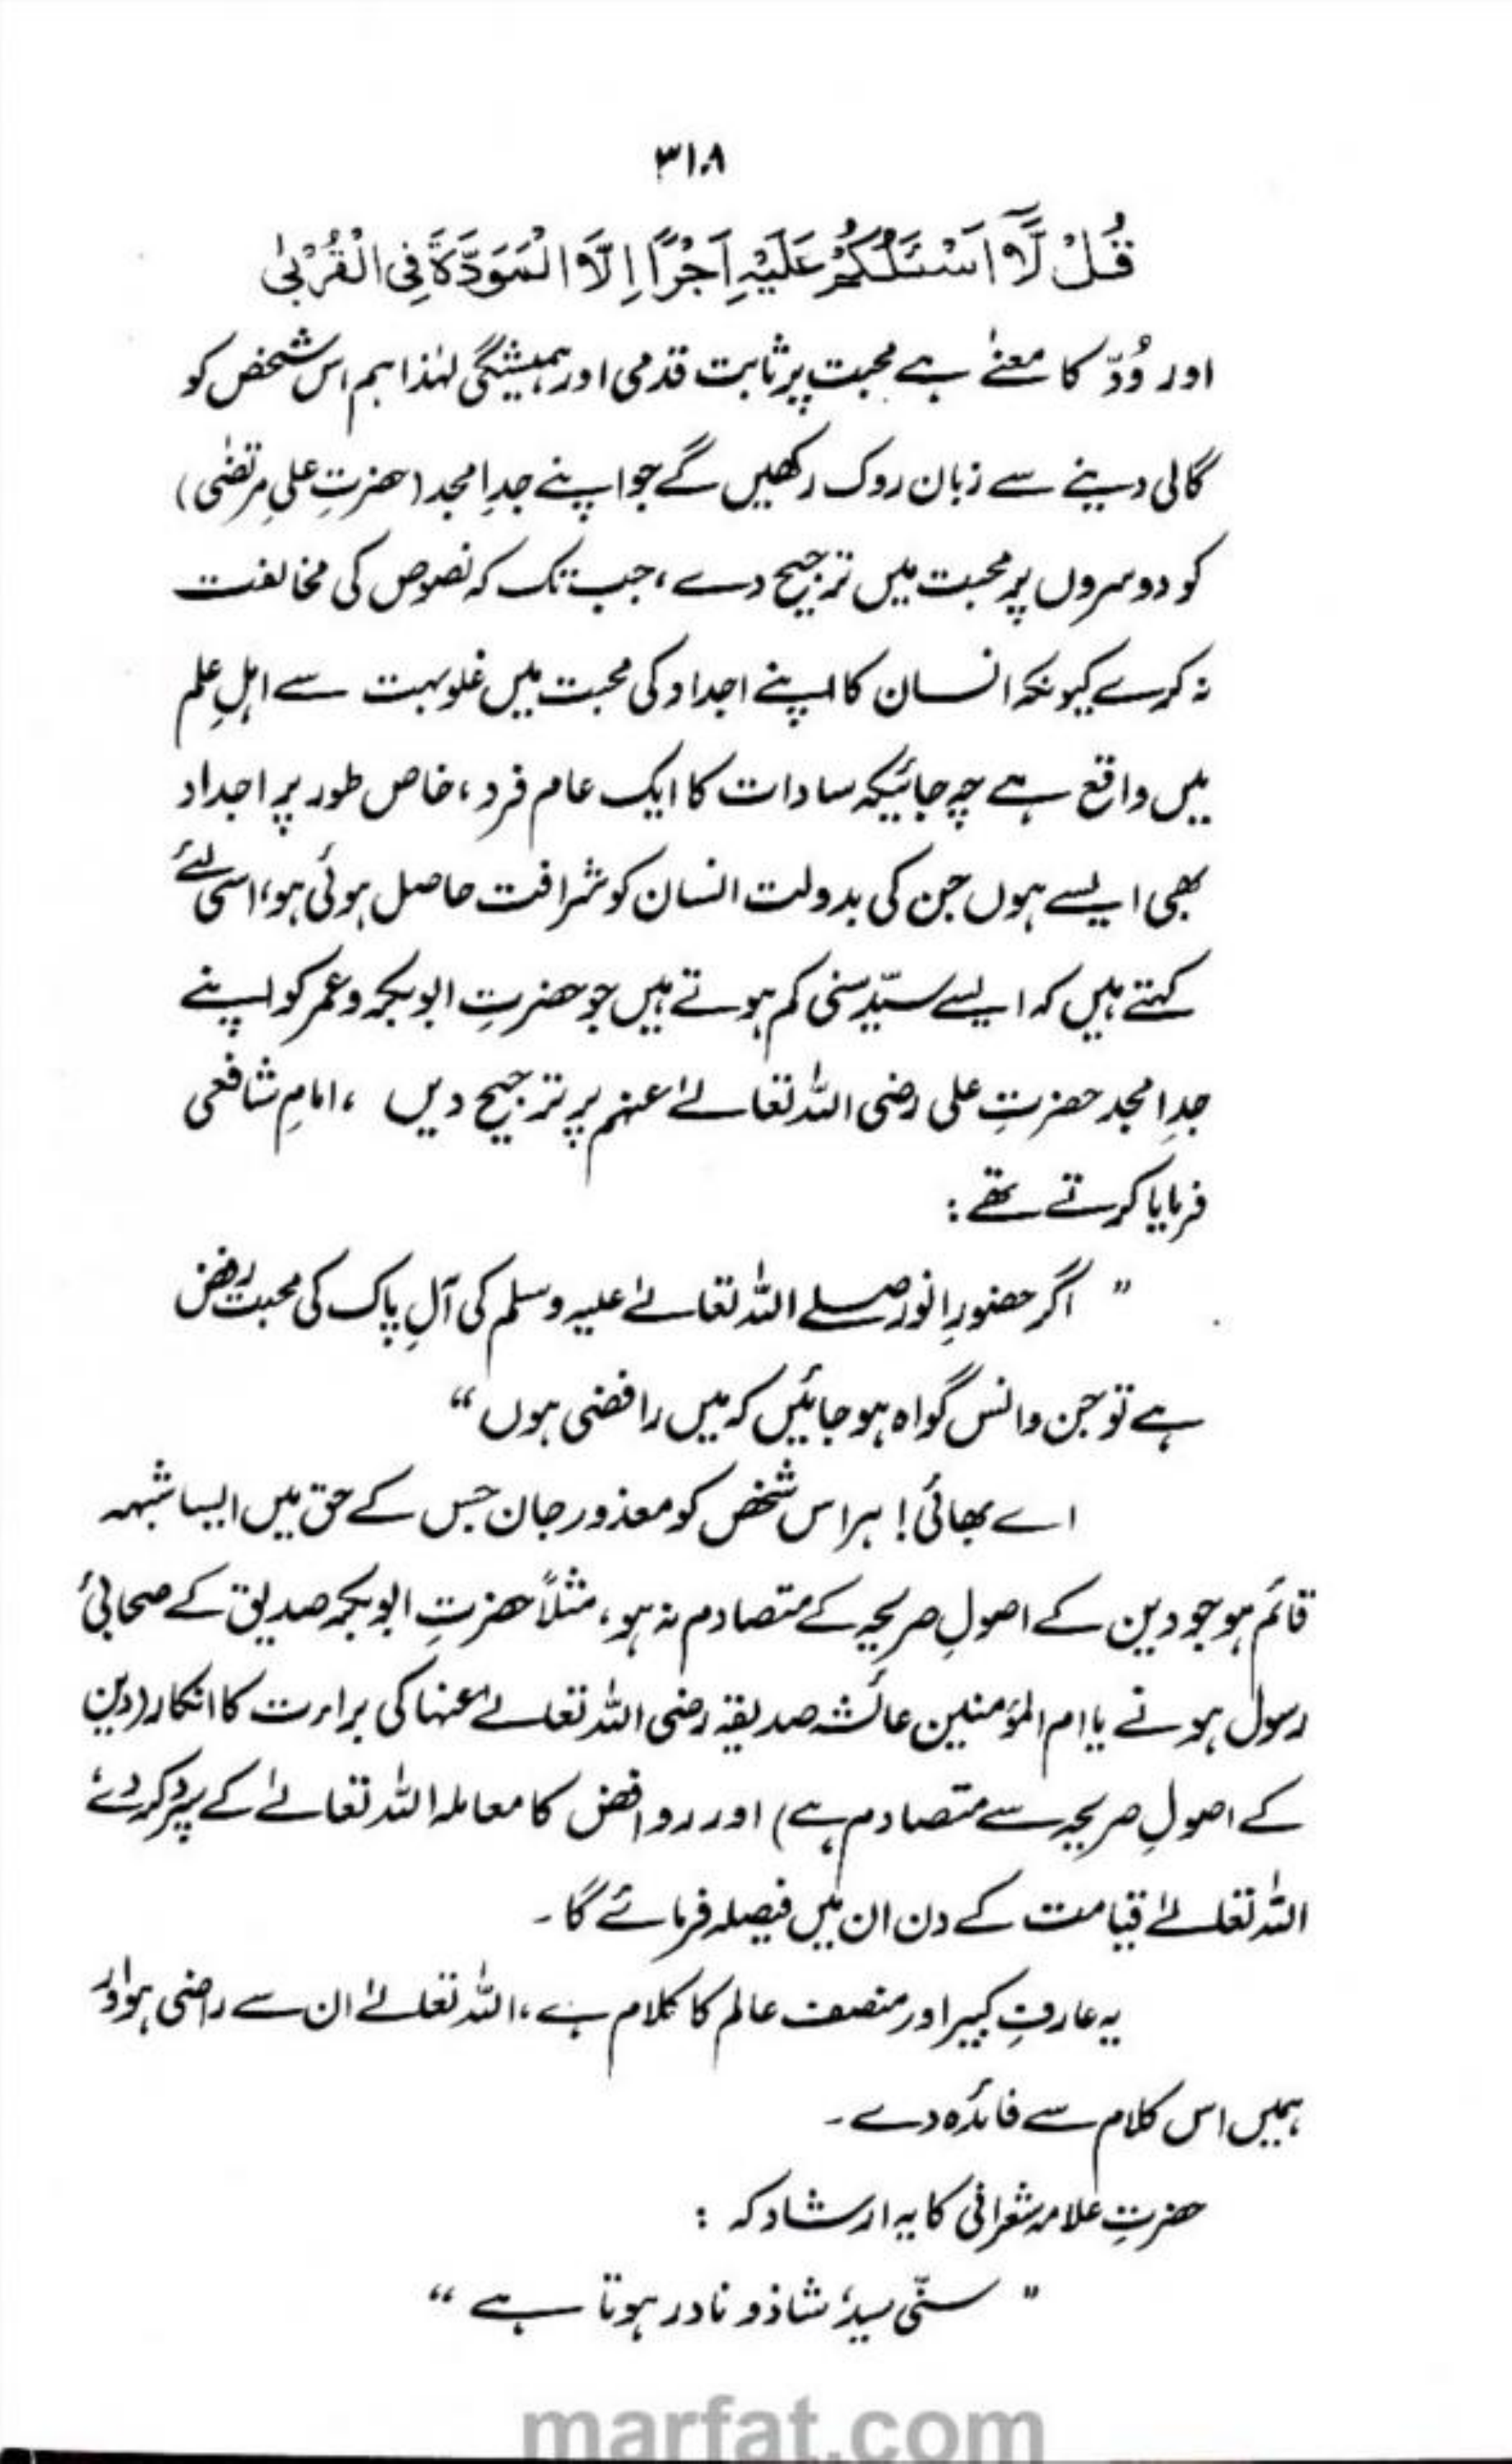 ۳۱۸
قُلْ لَّآ اَسْئَلُكُمْ عَلَيْهِ اَجْرًا اِلَّا الْمَوَدَّةَ فِى الْقُرْبٰى
اور وُدّ کا معنےٰ ہے محبت پر ثابت قدمی اور ہمیشگی لہٰذا ہم اس شخص کو
گالی دینے سے زبان روک رکھیں گے جو اپنے جدِ امجد (حضرتِ علی مرتضیٰ)
کو دوسروں پر محبت میں ترجیح دے، جب تک کہ نصوص کی مخالفت
نہ کرے کیونکہ انسان کا اپنے اجداد کی محبت میں غلو بہت سے اہلِ علم
میں واقع ہے چہ جائیکہ سادات کا ایک عام فرد، خاص طور پر اجداد
بھی ایسے ہوں جن کی بدولت انسان کو شرافت حاصل ہوئی ہو، اسی لئے
کہتے ہیں کہ ایسے سیّد سنی کم ہوتے ہیں جو حضرتِ ابوبکر و عمر کو اپنے
جدِ امجد حضرتِ علی رضی اللہ تعالےٰ عنہم پر ترجیح دیں ، امامِ شافعی
فرمایا کرتے تھے :
" اگر حضورِ انور صلے اللہ تعالےٰ علیہ وسلم کی آلِ پاک کی محبت رفض
ہے تو جن و انس گواہ ہو جائیں کہ میں رافضی ہوں "
اے بھائی! ہر اس شخص کو معذور جان جس کے حق میں ایسا شبہہ
قائم ہو جو دین کے اصولِ صریحہ کے متصادم نہ ہو، مثلاً حضرتِ ابوبکر صدیق کے صحابیٔ
رسول ہونے یا ام المؤمنین عائشہ صدیقہ رضی اللہ تعالےٰ عنہا کی براءت کا انکار (دین
کے اصولِ صریحہ سے متصادم ہے) اور روافض کا معاملہ اللہ تعالےٰ کے سپرد کر دئے
اللہ تعالےٰ قیامت کے دن ان میں فیصلہ فرمائے گا ۔
یہ عارفِ کبیر اور منصف عالم کا کلام ہے، اللہ تعالےٰ ان سے راضی ہو اور
ہمیں اس کلام سے فائدہ دے ۔
حضرتِ علامہ شعرانی کا یہ ارشاد کہ :
" سنّی سید، شاذ و نادر ہوتا ہے "
marfat.com